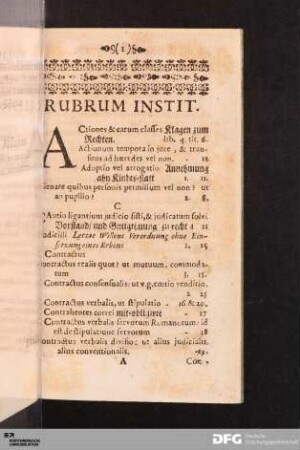 (1)
RUBRUM INSTIT.
ACtiones & earum classes Klagen zum
Rechten. lib. 4. tit. 6.
Actionum tempora in jure, & tran-
situs ad hæredes vel non. - 12
Adoptio vel arrogatio Annehmung
ahn Kindes-statt 1. 11.
Alienare quibus personis permissum vel non? ut
an pupillo? 2. 8.
C
CAutio ligantium judicio sisti, & judicatum solvi
Vorstand/ und Genugthuung zu recht 4 11
Codicilli Letzte Willens Verordnung ohne Ein-
setzung eines Erbens 2. 25
Contractus
Contractus realis quot? ut mutuum, commoda-
tum 3. 15.
Contractus consensualis: ut v.g. emtio venditio.
2 25
Contractus verbalis, ut stipulatio - 16 & 20.
Contrahentes correi mit-obligirte - 17
Contractus verbalis servorum Romanorum: id
est de stipulatione servorum - 18
Contractus verbalis divisio; ut alius judicialis,
alius conventionalis, -19.
A Con-
DFG Deutsche
Forschungsgemeinschaft